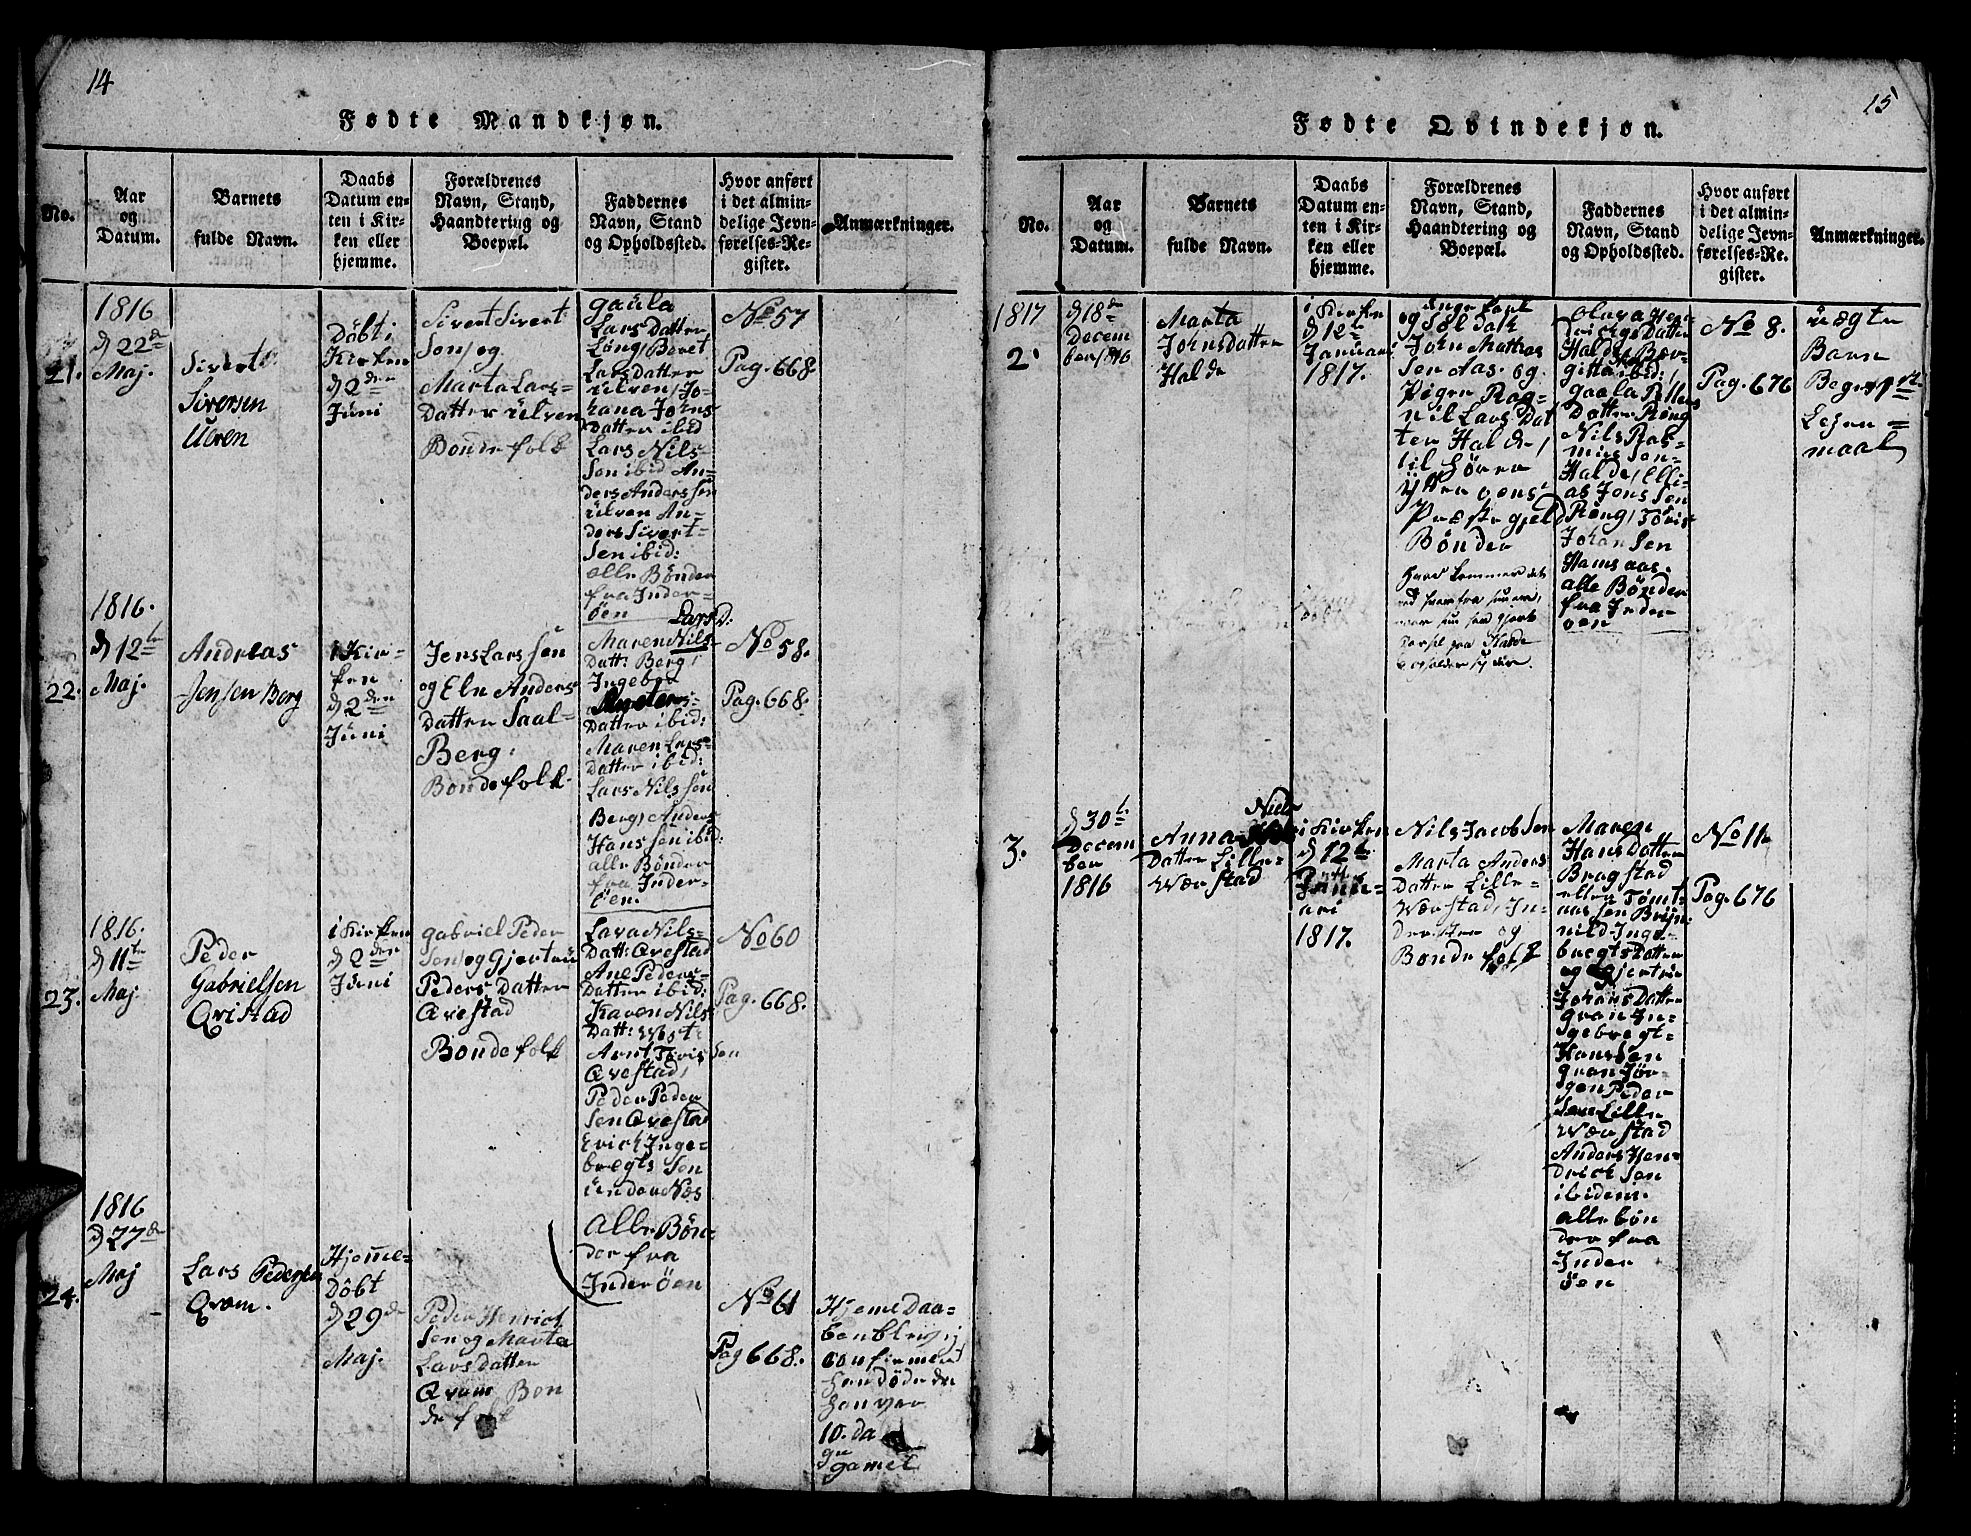 14
Fødte Mandkjøn.
No.
Aar
og
Datum.
Barnets
fulde Navn.
Daabs
Datum en-
ten i Kir-
ken eller
hjemme.
Forældrenes
Navn, Stand,
Haandtering og
Boepæl.
Faddernes
Navn, Stand
og Opholdssted.
Hvor anført
i det almin-
delige Jevn-
førelses-Re-
gister.
Anmærkninger.
21.
1816
d 22de
Maj.
Sivert
Siversen
Ulven
Döbt i
Kirken
d 2den
Juni
Sivert Sivert
Sen og
Marta Lars-
Datter Ulven
Bonde folk
Gaula
Lars Datter
Löng, Beret
Lars Datter
Ulven, Jo-
hana Johns
Datter ibid
Lars Nils-
Sen ibid An-
ders Anders sen
Ulven An-
ders Sivert-
Sen ibid:
alle Bönder
fra Inder-
öen
No 57
Pag. 668.
22.
1816.
d 12te
Maj.
Andreas
Jensen Berg
i Kir-
ken
d 2den
Juni
Jens Lars sen
og Eln Anders
Datter Saal-
Berg.
Bonde folk.
Lars D:
Maren Nils-
Datt: Berg,
Ingebor
Datter ibid:
Maren Lars-
Datter ibid:
Lars Nils sen
Berg, Anders
Hans sen ibid:
alle Bönder
fra Inder-
öen.
No 58.
Pag. 668.
23.
1816.
d 11te
Maj
Peder
Gabrielsen
Qvistad
i Kirken
d 2den
Juni
Gabriel Peder
Sen og Gjertru
Peders Datter
Qvestad
Bonde folk
Lava Nils-
Datt: Qvestad
Ane Peders-
Datter ibid:
Karen Nils
Datt: West-
Arnt Toris sen
Qvestad,
Peder Peder
Sen Qvestad
Erich Inge-
bregts Sen
under Næs
Alle Bön-
der fra
Inder Öen
No 60
Pag. 668.
24.
1816
d 27de
Maj
Lars Pedersen
Qvam.
Hjemme-
Döbt
d 29de
Maj.
Peder Henrich
Sen og Marta
Lars Datter
Qvam Bon
de folk
No 61
Pag 668.
Hjeme Daa-
ben blev ej
confirmert
han döde da
han var
10. da
ge
gamel
15
Fødte Qvindekjøn.
No.
Aar
og
Datum.
Barnets
fulde Navn.
Daabs
Datum en-
ten i Kir-
ken eller
hjemme.
Forældrenes
Navn, Stand,
Haandtering og
Boepæl.
Faddernes
Navn, Stand
og Opholdssted.
Hvor anført
i det almin-
delige Jevn-
førelses-Re-
gister.
Anmærkninger.
1817
2
d 18de
Decem
ber 1816
Marta
Johnsdatter
Halde
i Kirken
d 12te
Januari
1817.
unge karl
og Soldat
John Mattias
Sen Aas. og
Pigen Rag-
nil Lars Dat
ter Halde,
til hörer
Ytter öens
Præste gjeld
Bönder
Olava Hen-
richs Datter
Halde, Ber-
gitta ibid:
Gaala Pelles
Datter Röng
Nils Ras-
mus Sen-
Halde, Elli-
as Jons Sen
Röng, Töris
Johan Sen
Hams aas.
alle Bönder
fra Inder
öen
No 8.
Pag. 676
uægte
Barn
Beges 1te
Lejer=
maal
3.
d 30te
Decem
ber
1816
Niels
Anna
Datter Lille-
Wær stad
i Kirken
d 12te
Janu-
ari
1817.
Nils Jacob Sen
Marta Anders
Datter Lille-
Wær stad, In-
derster og
Bonde folk
Maren
Hans Datter
Brag stad
Ellen Tömt-
aas sen Brÿn-
nild Inge-
bregts Datter
og Gjertrue
Johans Datter
gran In-
gebregt-
Hans Sen
gran Jör-
gen Peder
Sen Lille
Wær stad
Anders Hen-
drich Sen
ibidem.
alle bön
der fra
Inder
öen
No 11
Pag. 676